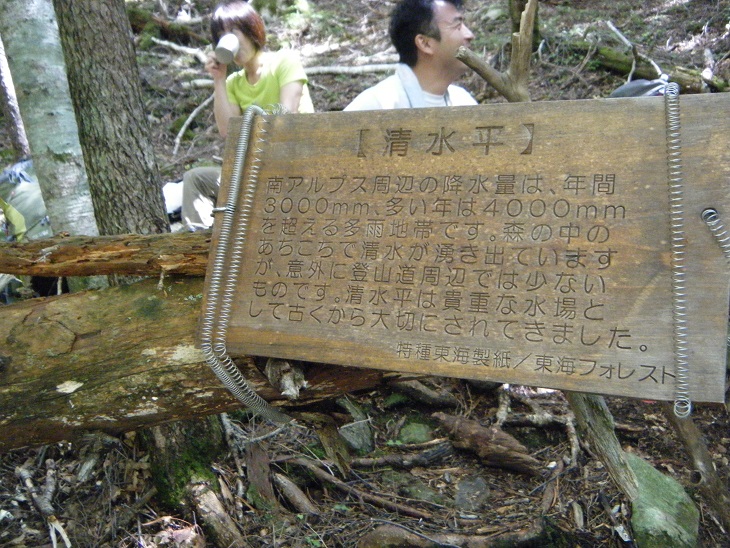 【清水平】
南アルプス周辺の降水量は、年間
3000mm、多い年は4000mm
を超える多雨地帯です。森の中の
あちこちで清水が湧き出ています
が、意外に登山道周辺では少ない
ものです。清水平は貴重な水場と
して古くから大切にされてきました。
特種東海製紙／東海フォレスト